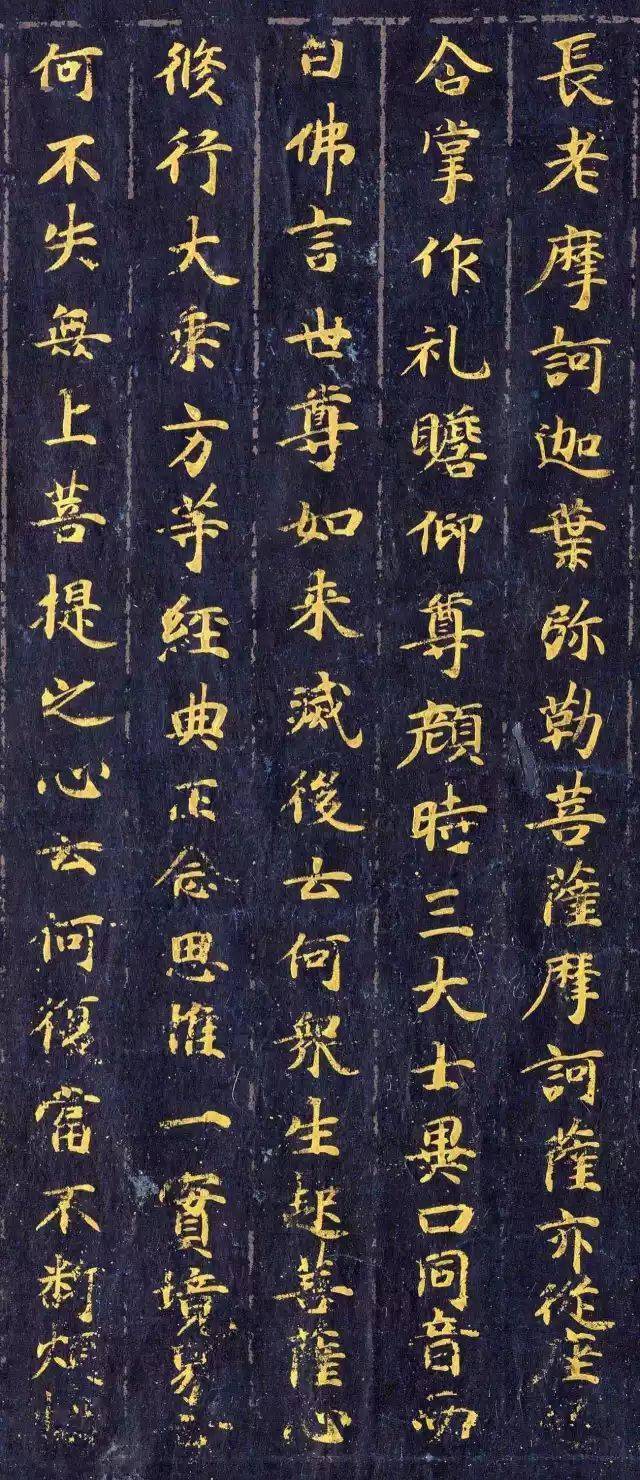 長老摩訶迦葉弥勒菩薩摩訶薩亦從座
合掌作礼瞻仰尊顏時三大士異口同音而
白佛言世尊如来滅後云何衆生起菩薩心
修行大乘方等經典正念思惟一實境界云
何不失無上菩提之心云何復當不断煩惱